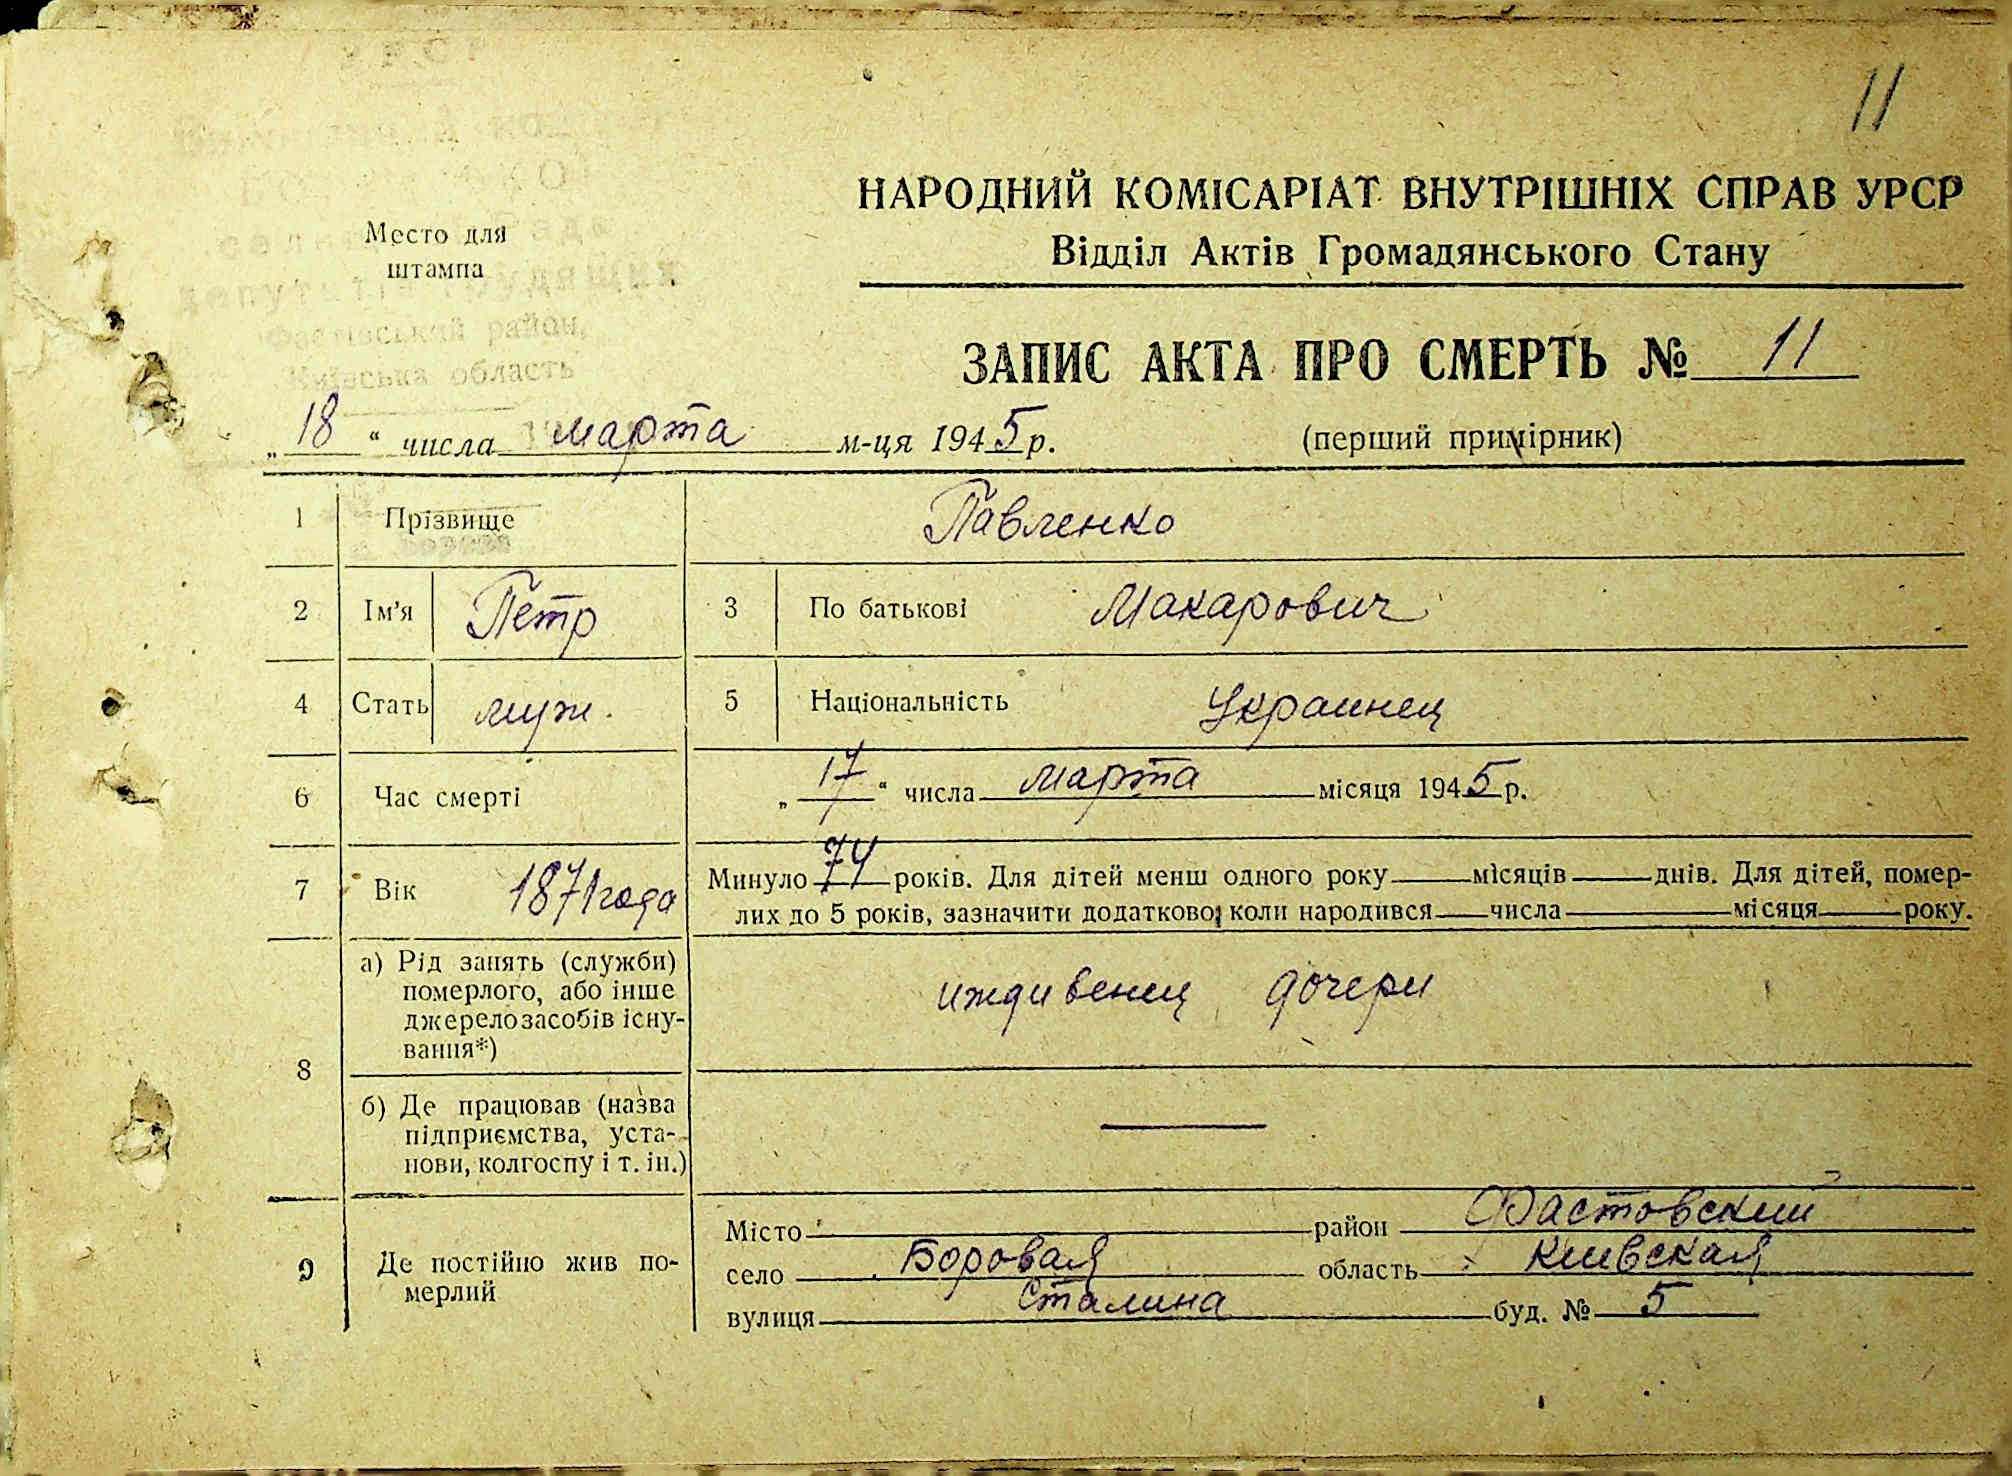 11
Место для
штампа
НАРОДНИЙ КОМІСАРІАТ ВНУТРІШНІХ СПРАВ УРСР
Відділ Актів Громадянського Стану
район,
Київська область
ЗАПИС АКТА ПРО СМЕРТЬ № 11
„18“ числа марта м-ця 1945 р. (перший примірник)
1 Прізвище Павленко
2 Ім'я Петр 3 По батькові Макарович
4 Стать муж. 5 Національність Украинец
6 Час смерті „17“ числа марта місяця 1945 р.
7 Вік 1871 года Минуло 74 років. Для дітей менш одного року місяців днів. Для дітей, помер-
лих до 5 років, зазначити додатково, коли народився числа місяця року.
8 а) Рід занять (служби)
померлого, або інше
джерело засобів існу-
вання*)
иждивенец дочери
б) Де працював (назва
підприємства, уста-
нови, колгоспу і т. ін.)
—
9 Де постійно жив по-
мерлий
Місто район Фастовский
село Боровая область Киевская
вулиця Сталина буд. № 5